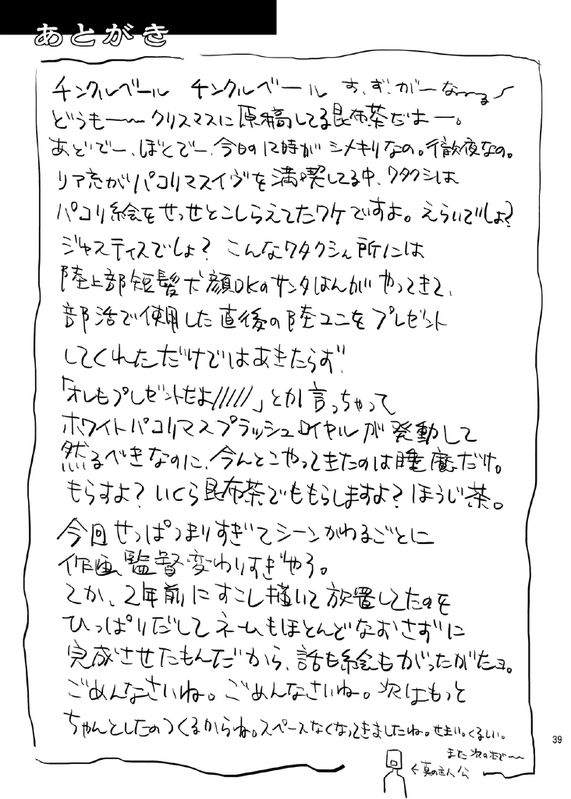 あとがき
チンクルベール チンクルベール す、ず、がーなーーる
どうもーークリスマスに原稿してる昆布茶だよー。
あとでー、ぼくでー、今日の12時がシメキリなの。徹夜なの。
リア充がパコリマスイヴを満喫してる中、ワタクシは
パコリ絵をせっせとこしらえてたワケですよ。えらいでしょ?
ジャスティスでしょ? こんなワタクシん所には
陸上部短髪犬顔DKのサンタはんがやってきて、
部活で使用した直後の陸ユニをプレゼント
してくれただけではあきたらず、
「オレもプレゼントだよ/////」とか言っちゃって
ホワイトパコリマスプラッシュロイヤルが発動して
然るべきなのに、今んとこやってきたのは睡魔だけ。
もらすよ? いくら昆布茶でももらしますよ? ほうじ茶。
今回せっぱつまりすぎてシーンがわるごとに
作画監督変わりすぎやろ。
てか、2年前にすこし描いて放置してたのを
ひっぱりだしてネームもほとんどなおさずに
完成させたもんだから、話も絵もがったがたヨ。
ごめんなさいね。ごめんなさいね。次はもっと
ちゃんとしたのつくるからね。スペースなくなってきましたね。せまい。くるしい。
また次の本で〜〜
←真の主人公
39